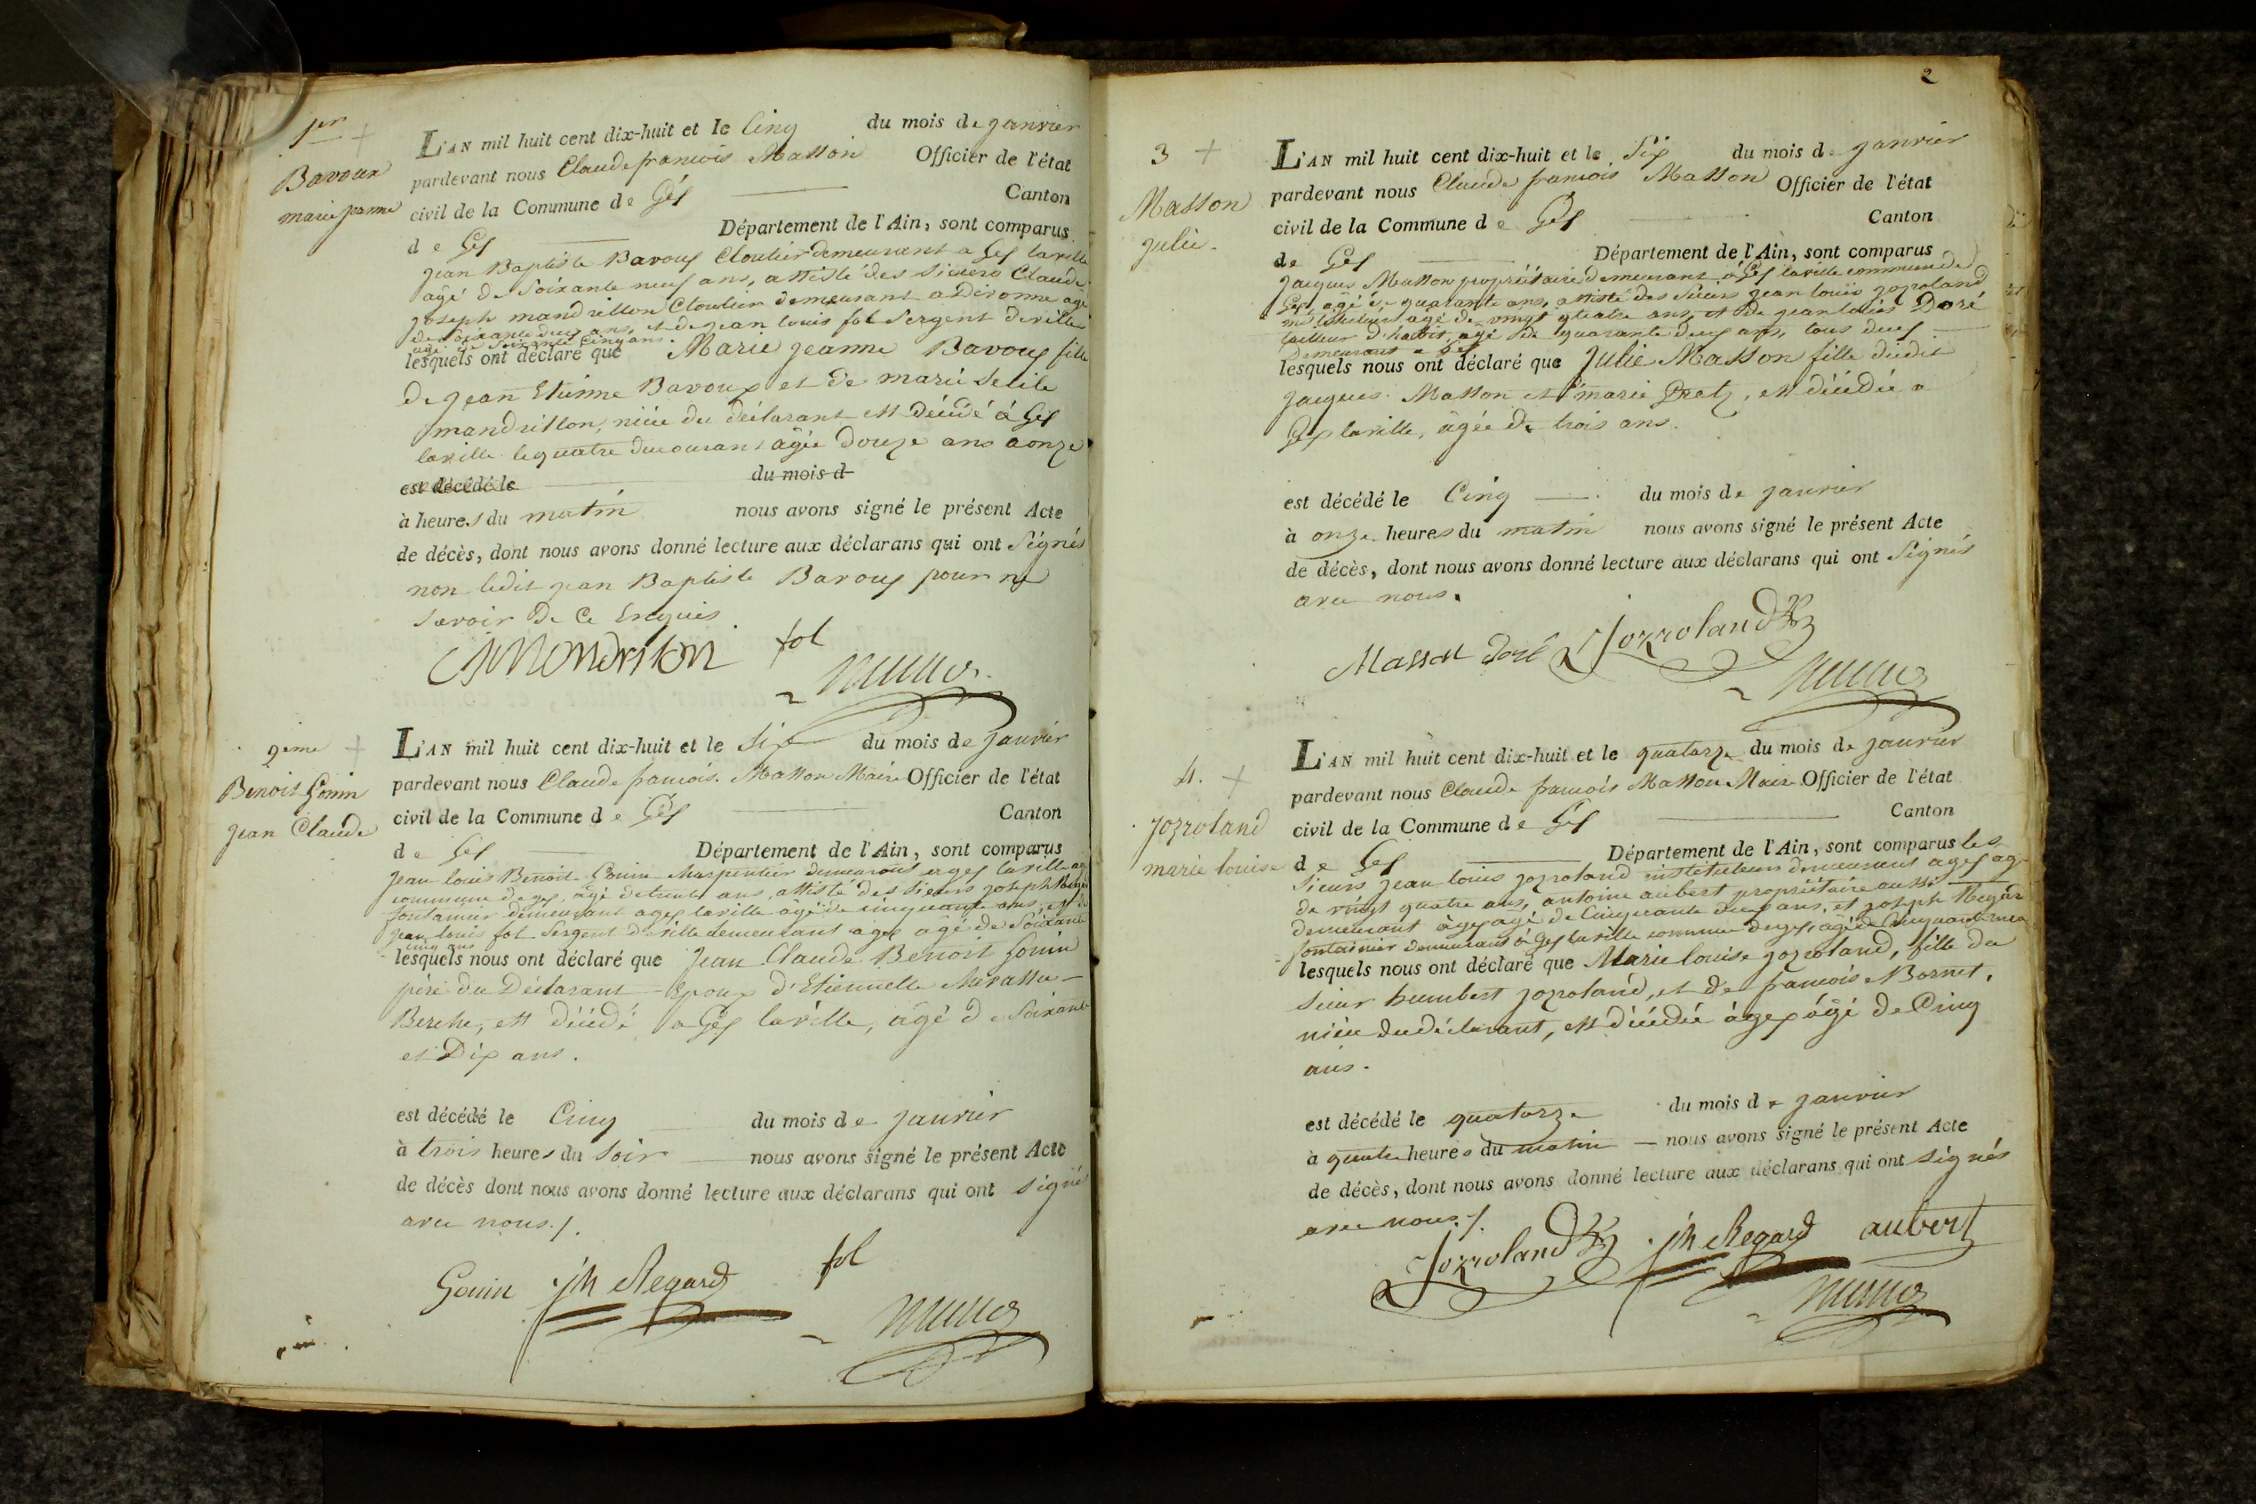 1er
Bavoux
marie jeanne
L'AN mil huit cent dix-huit et le Cinq du mois de janvier
pardevant nous Claude francois Masson Officier de l'état
civil de la Commune de Gex Canton
de Gex Département de l'Ain, sont comparus
Jean Baptiste Bavoux Cloutier demeurant a Gex laville
âgé de Soixante neuf ans, assisté des Sieurs Claude
joseph mandrillon Cloutier demeurant a Divonne âgé
de Soixante deux ans, et de jean louis fol Sergent deville
âgé de Soixante Cinq ans.
lesquels ont déclaré que Marie jeanne Bavoux fille
De jean Etienne Bavoux et de marie
mandrillon, niéce du déclarant est décédé à Gex
laville le quatre ducourant âgée Douze ans a onze
est décédé le du mois d
à heures du matin nous avons signé le présent Acte
de décès, dont nous avons donné lecture aux déclarans qui ont Signés
non ledit jean Baptiste Bavoux pour ne
Savoir De Ce Enquis
CJ Mandrilon fol
2eme
Benoit Gonin
jean Claude
L'AN mil huit cent dix-huit et le Six du mois de janvier
pardevant nous Claude francois Masson Maire Officier de l'état
civil de la Commune de Gex Canton
de Gex Département de l'Ain, sont comparus
Jean louis Benoit Gonin Charpentier demeurant a gex laville
commune de gex, âgé detrente ans, assisté des Sieurs joseph Regard
fontainier demeurant agex laville âgé de cinquante ans, et de
jean louis fol Sergent deville demeurant agex âgé de Soixante
cinq ans
lesquels nous ont déclaré que Jean Claude Benoit Gonin
père du Déclarant Epoux d'Etiennette
Berche, est décédé a Gex laville, âgé de Soixante
et Dix ans.
est décédé le Cinq du mois de janvier
à trois heures du Soir nous avons signé le présent Acte
de décès dont nous avons donné lecture aux déclarans qui ont signés
avec nous./.
Gonin jh Regard fol
2
3
Masson
julie.
L'AN mil huit cent dix-huit et le Six du mois de janvier
pardevant nous Claude francois Masson Officier de l'état
civil de la Commune de Gex Canton
de Gex Département de l'Ain, sont comparus
jacques Masson propriétaire demeurant à Gex laville commune de
Gex âgé de quarante ans, assisté des Sieurs jean louis jozroland
instituteur âgé de vingt quatre ans, et de jean louis Doré
tailleur d'habit, âgé de quarante deux ans, tous deux
Demeurant a Gex
lesquels nous ont déclaré que Julie Masson fille dudit
jacques Masson et marie , est décédée a
Gex laville, âgée de trois ans.
est décédé le Cinq du mois de janvier
à onze heures du matin nous avons signé le présent Acte
de décès, dont nous avons donné lecture aux déclarans qui ont Signés
avec nous.
Masson Doré Jozroland
4.
jozroland
marie louise
L'AN mil huit cent dix-huit et le quatorze du mois de janvier
pardevant nous Claude francois Masson Maire Officier de l'état
civil de la Commune de Gex Canton
de Gex Département de l'Ain, sont comparus les
Sieurs jean louis jozroland instituteur demeurant agex âgé
de vingt quatre ans, antoine aubert propriétaire aussi
demeurant àgex agé de Cinquante deux ans, et joseph Regard
fontainier demeurant à Gex laville commune degex, âgé de Cinquante
lesquels nous ont déclaré que Marie louise jozroland, fille du
Sieur humbert jozroland, et de francoise Bornet,
niéce dudéclarant, est décédée àgex âgé de Cinq
ans.
est décédé le quatorze du mois de janvier
à quatre heures du matin nous avons signé le présent Acte
de décès, dont nous avons donné lecture aux déclarans qui ont signés
avec nous./.
Jozroland jh Regard aubert